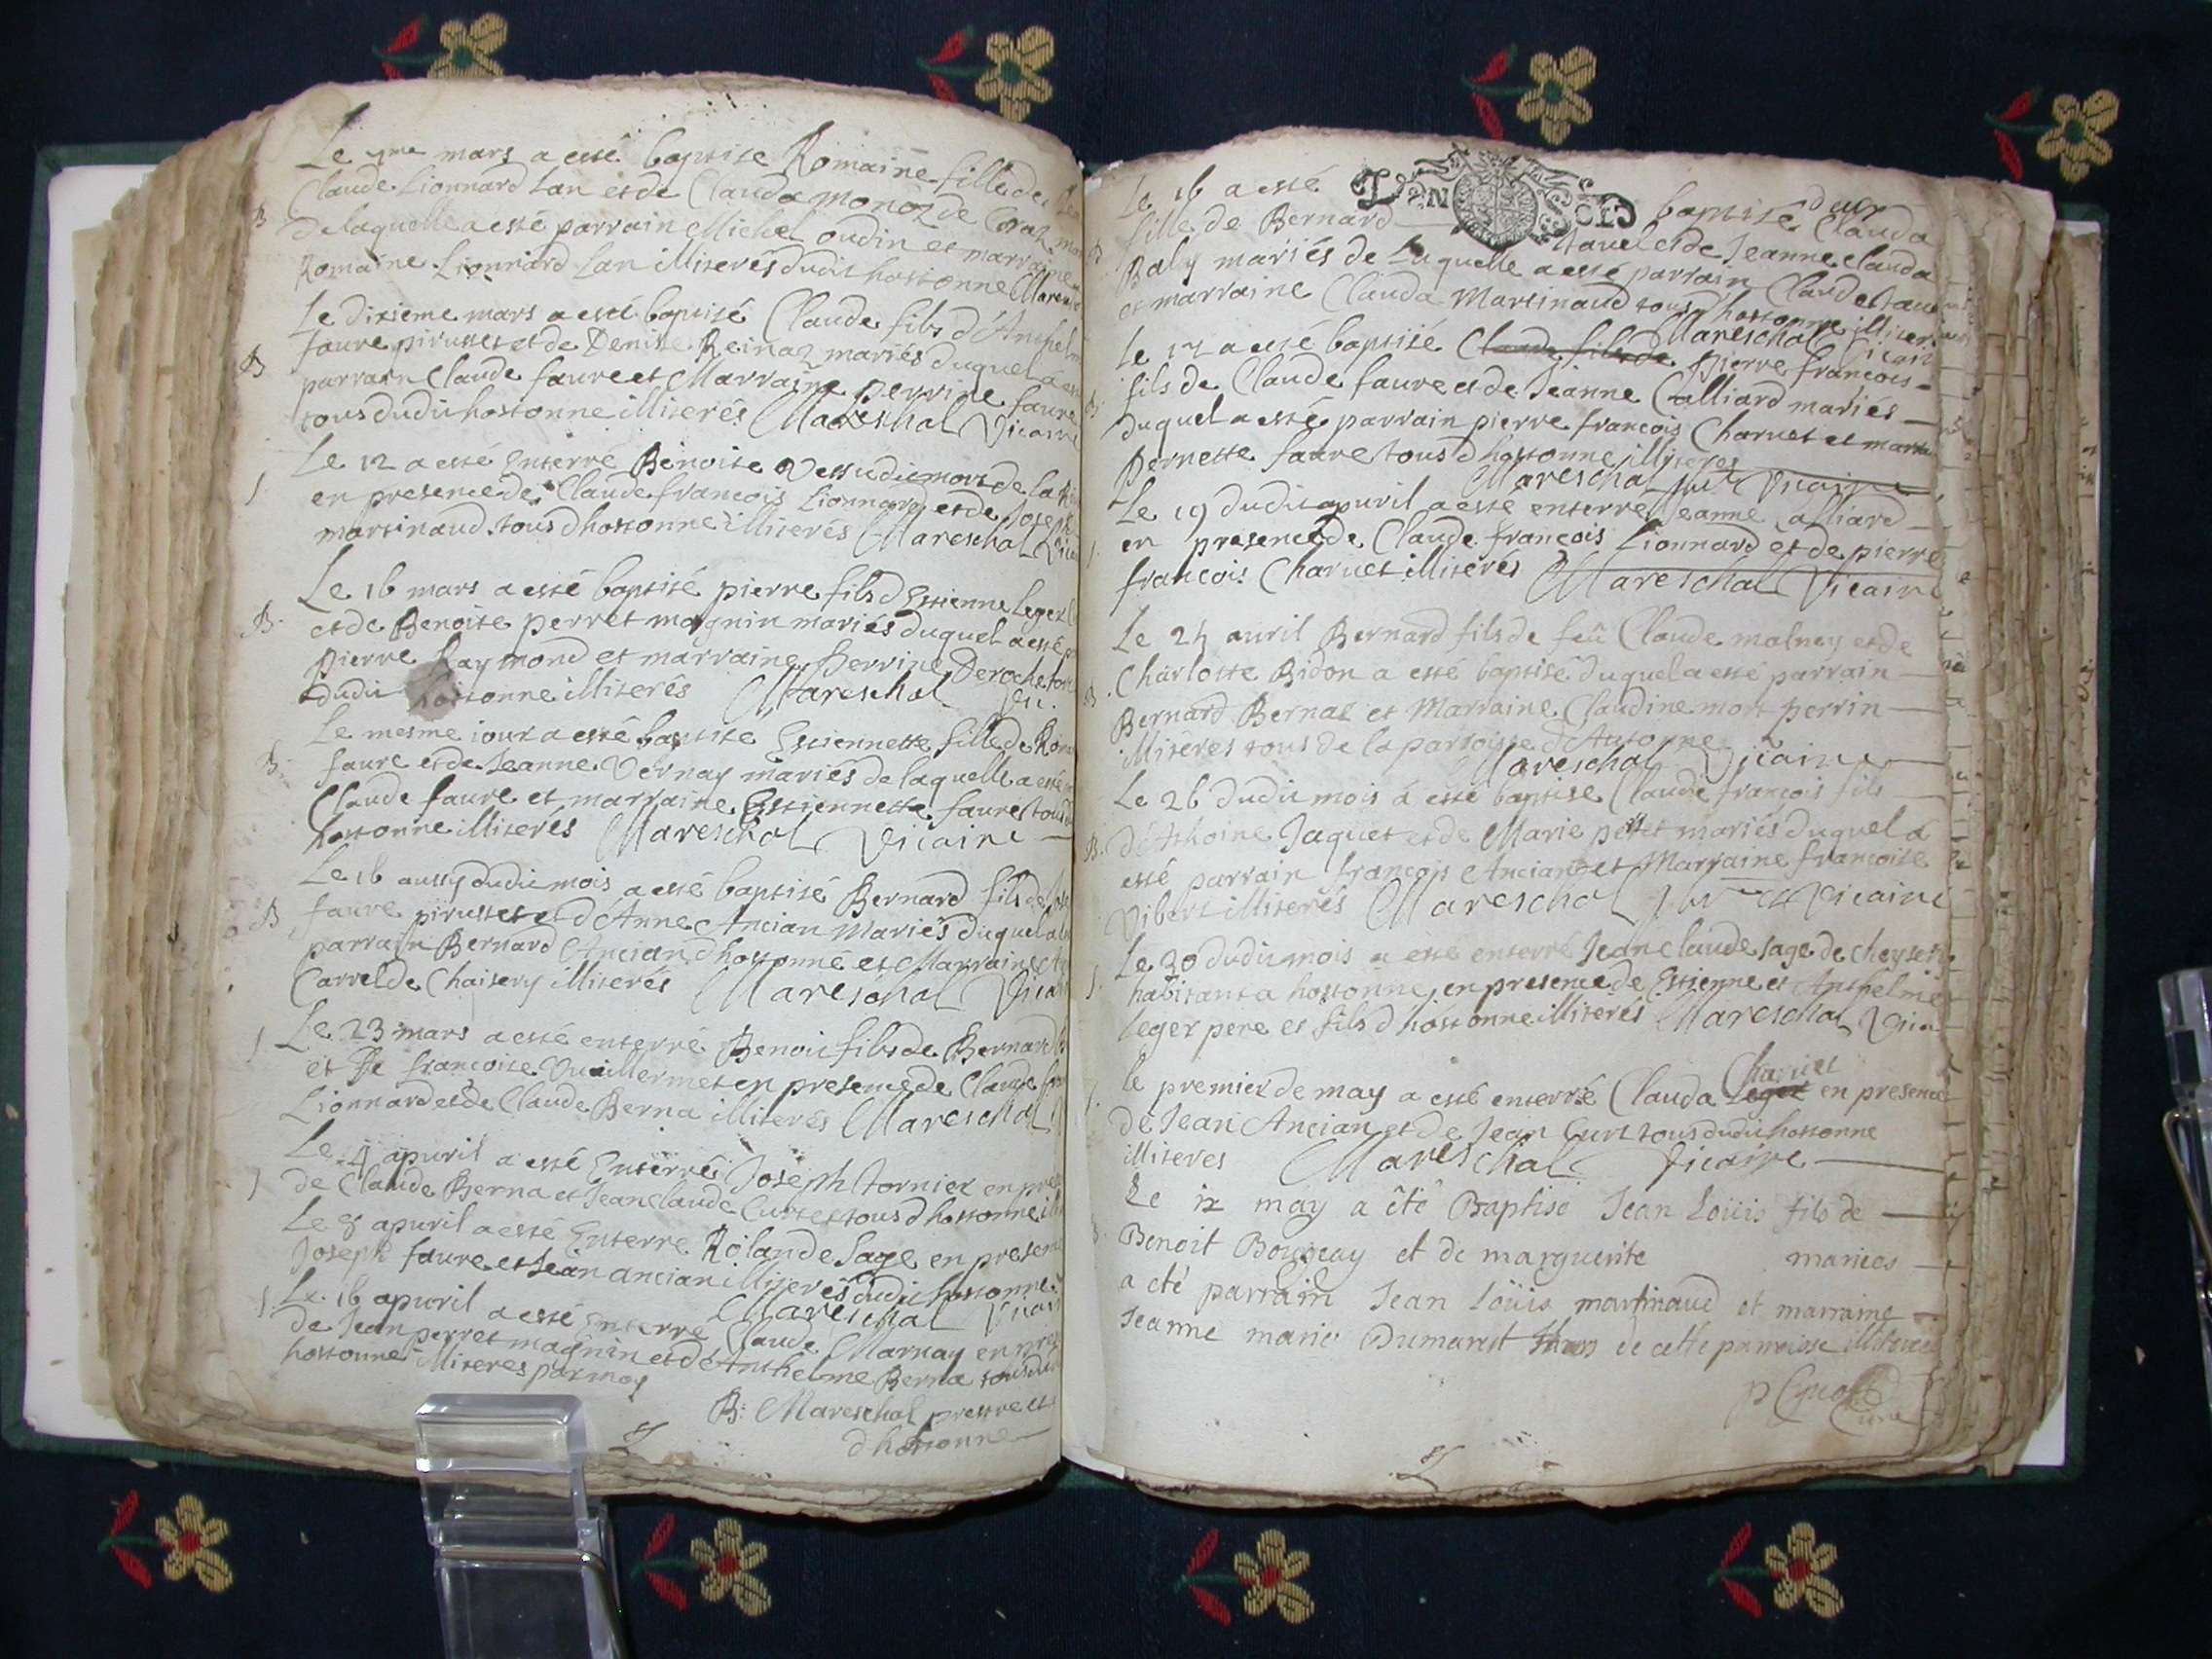 Le 9me mars a esté baptise Romaine fille de
Claude Lionnard Lan et de Clauda Monoz de
B de laquelle a esté parrain Michel oudin et marraine
Romaine Lionnard Lan illiterés dudit hostonne Mares
Le dixieme mars a esté baptisé Claude fils d'Anthel
faure pirusset et de Denise Reinaz mariés duquel a
B parrain Claude faure et Marraine perrine faure
tous dudit hostonne illiterés Mareschal Vicaire
Le 12 a esté Enterré Benoite
1 en presence de Claude francois Lionnard et de Joseph
martinaud tous dhostonne illiterés Mareschal Vica
Le 16 mars a esté baptisé pierre fils d Estienne leger
B. et de Benoite perret magnin mariés duquel a esté
Pierre Raymond et marraine perrine Deroche tous
dudit hostonne illiterés Mareschal Vic.
Le mesme iour a esté baptise Estiennette fille de
B. faure et de Jeanne Vernay mariés de laquelle a esté
Claude faure et marraine Estiennette faure tous d
hostonne illiterés Mareschal Vicaire
Le 16 aussy dudit mois a esté baptisé Bernard fils de
B faure pirusset et d'Anne Ancian Mariés duquel a
parrain Bernard Ancian d hostonne et Marraine
Carrel de Chaisery illiterés Mareschal Vicai
1 Le 23 mars a esté enterré Benoit fils de Bernard
et de francoise Vuillermet en presence de Claude
Lionnard et de Claude Berna illiterés Mareschal
Le 4 apuril a esté Enterré Joseph tornier en pre
1 de Claude Berna et Jean claude Curtet tous d hostonne
Le 8 apuril a esté Enterré Rolande Sage en presen
Joseph faure et Jean ancian illiterés dudit hostonne
Mareschal Vicai
1 Le 16 apuril a esté Enterré Claude Marnay en pre
de Jean perret magnin et d'Anthelme Berna tous du
hostonne illiteres par moy
B: Mareschal prestre et
d hostonne
deux
Le 16 a esté baptisé Clauda
fille de Bernard tavel et de Jeanne Clauda
Baly mariés de laquelle a esté parrain Claude
et marraine Clauda Martinaud tous d hostonne illiter
Mareschal Vicair
Le 17 a esté baptisé Claude fils de Pierre francois
fils de Claude faure et de Jeanne Calliard mariés
duquel a esté parrain pierre francois Charuet et marra
Pernette faure tous d hostonne illiteres
Mareschal Vicaire
Le 19 dudit apuril a esté enterré Jeanne alliard
1. en presence de Claude francois Lionnard et de pierre
francois Charuet illiterés Mareschal Vicaire
Le 24 auril Bernard fils de feû Claude malnay et de
B. Charlotte Bidon a esté baptisé duquel a esté parrain
Bernard Bernaz et Marraine Claudine mort perrin
illiteres tous de la parroisse d'Autonne
Mareschal Vicaire
Le 26 dudit mois a esté baptise Claude francois fils
B. d'Anthoine Jaquet et de Marie petit mariés duquel a
esté parrain francois Ancian et Marraine francoise
Vibert illiterés Mareschal Vicaire
Le 30 dudit mois a esté enterré Jean claude sage de cheysery
1. habitant a hostonne, en presence de Estienne et Anthelme
leger pere et fils d hostonne illiterés Mareschal Vica
Charuet
1. le premier de may a esté enterré Clauda Leger en presence
de Jean Ancian et de Jean Curt tous dudit hostonne
illiteres Mareschal Vicaire
Le ix may a êté Baptisé Jean Loüis fils de
B. Benoit et de marguerite mariees
a eté parrain Jean Loüis martinaud et marraine
Jeanne marie Dumarest de cette parroisse illiterés
Curé